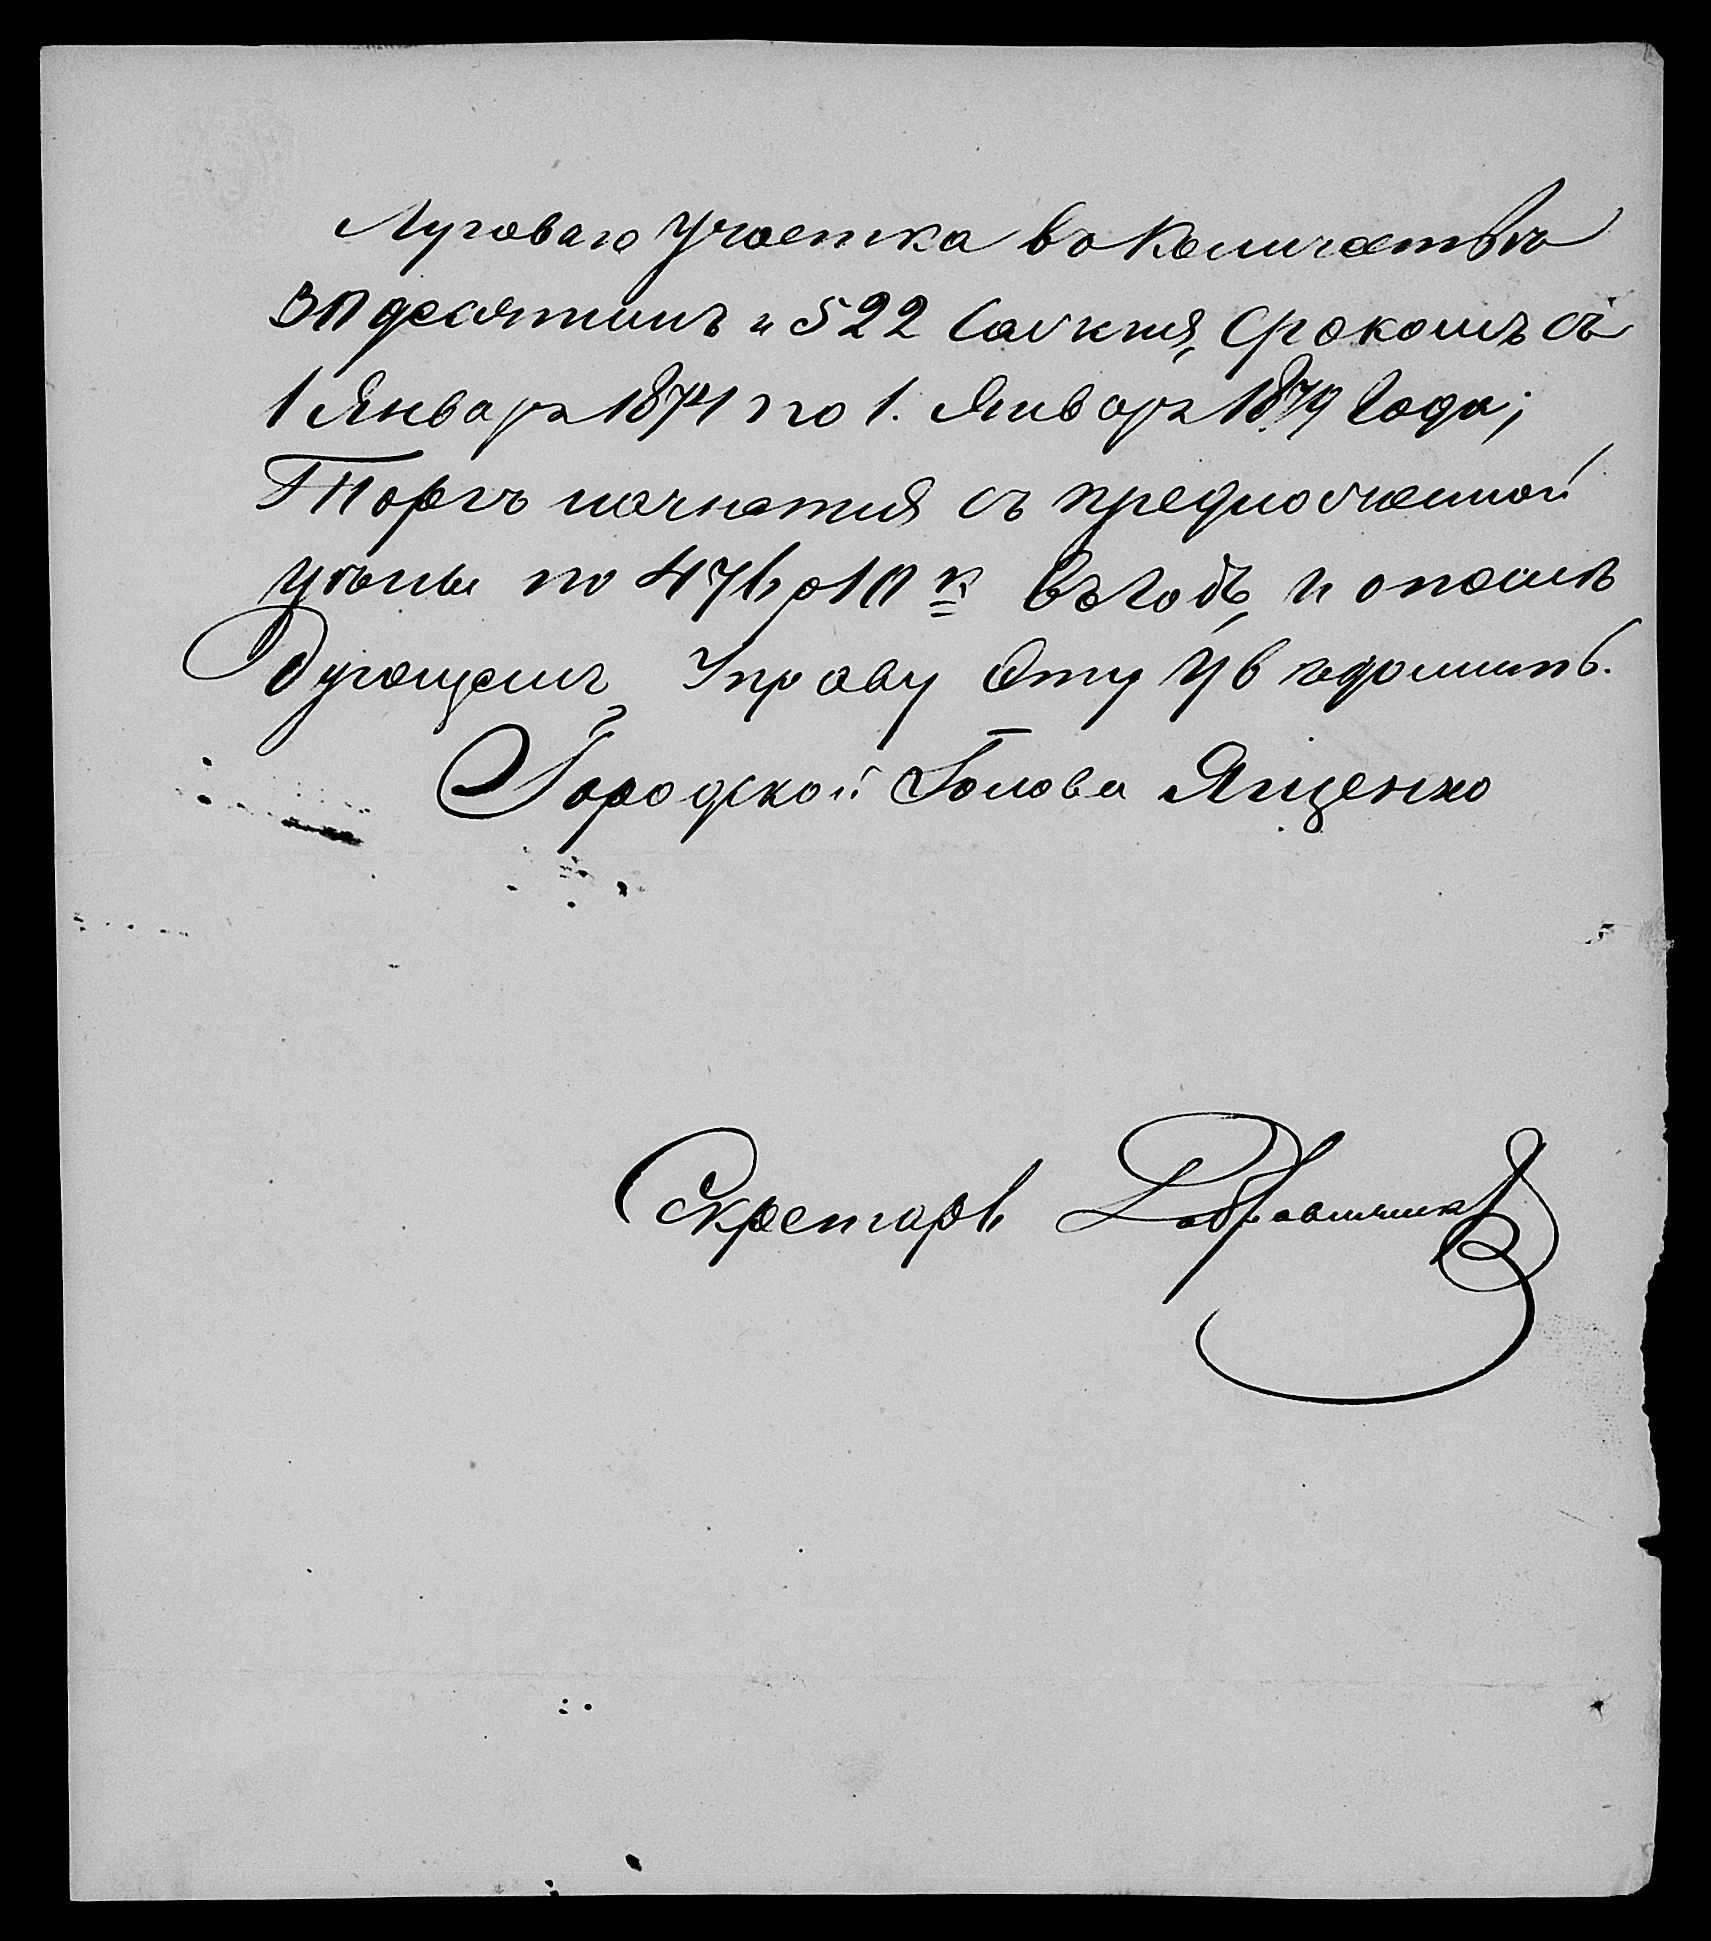 Луговаго Участка въ количествѣ
30 десятинъ и 522 сажня, срокомъ съ
1 Января 1874 по 1. Января 1879 года;
Торгъ начнется съ предложенной
цѣны по 476 р 10 к въ годъ, и о
Управу эту увѣдомить.
Городской Голова Ященко
Секретарь